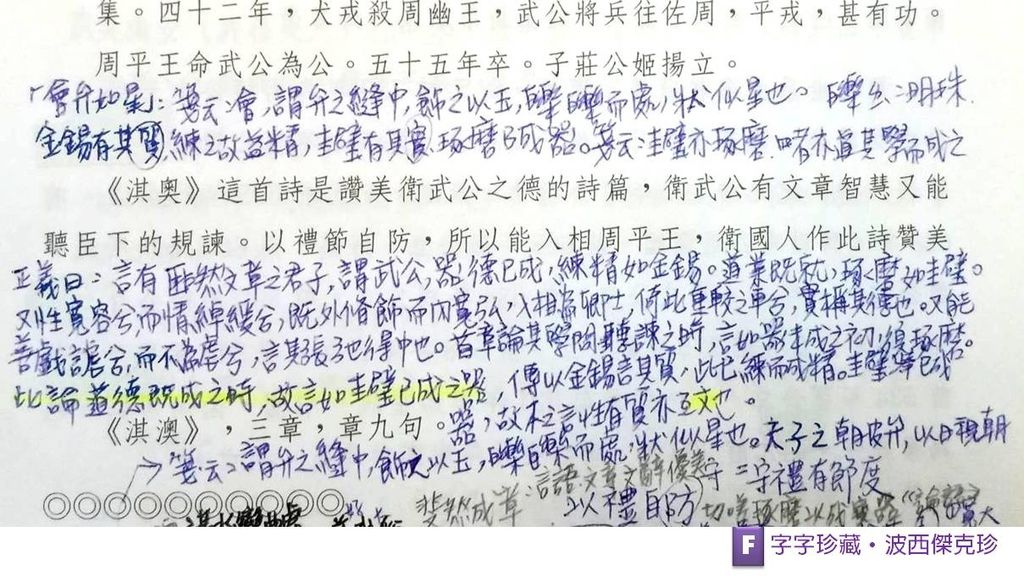 集。四十二年，犬戎殺周幽王，武公將兵往佐周，平戎，甚有功。
周平王命武公為公。五十五年卒。子莊公姬揚立。
「會弁如星」：箋云：會，謂弁之縫中，飾之以玉，皪皪而處，狀似星也。
金錫有其質，練之故益精，圭璧有其實，琢磨乃成器。箋云：圭璧亦琢磨
《淇奧》這首詩是讚美衛武公之德的詩篇，衛武公有文章智慧又能
聽臣下的規諫。以禮節自防，所以能入相周平王，衛國人作此詩贊美
正義曰：言有匪然文章之君子，謂武公，器德已成，練精如金錫。道業既就，琢磨如圭璧。
又性寬容兮，而情綽緩兮，既外修飾而內寬弘，入相為卿士，倚此重較之車兮，實稱其德也。又能
善戲謔兮，而不為虐兮，言其張弛得中也。首章論其學問聽諫之時，言如器未成之初，須琢磨。
此論道德既成之時，故言如圭璧已成之器，傳以金錫言其質，此已練而成精。圭璧舉已成
《淇澳》，三章，章九句。器，故本之言性有質亦互文也。
箋云：謂弁之縫中，飾之以玉，皪皪而處，狀似星也。天子之朝皮弁，以日視朝
◎◎◎◎◎◎◎◎◎◎◎◎◎◎
斐然成章：言語文章文辭優美
以禮自防
守禮有節度
F 字字珍藏・波西傑克珍